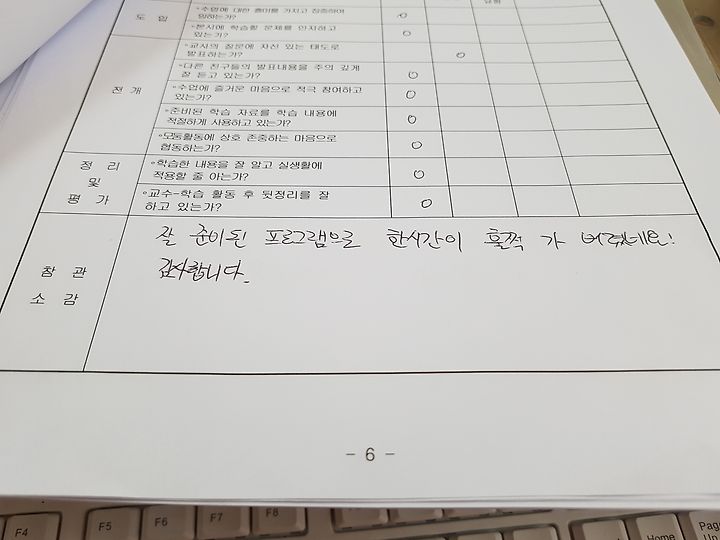 도 입
◦수업에 대한 흥미를 가지고 집중하여
임하는가?
◦본시에 학습할 문제를 인지하고
있는가?
전 개
◦교사의 질문에 자신 있는 태도로
발표하는가?
◦다른 친구들의 발표내용을 주의 깊게
잘 듣고 있는가?
◦수업에 즐거운 마음으로 적극 참여하고
있는가?
◦준비된 학습 자료를 학습 내용에
적절하게 사용하고 있는가?
◦모둠활동에 상호 존중하는 마음으로
협동하는가?
정 리
및
평 가
◦학습한 내용을 잘 알고 실생활에
적용할 줄 아는가?
◦교수-학습 활동 후 뒷정리를 잘
하고 있는가?
참 관
소 감
잘 준비된 프로그램으로 한시간이 훌쩍 가 버렸네요!
감사합니다.
- 6 -
F4 F5 F6 F7 F8
Home
Page
Up